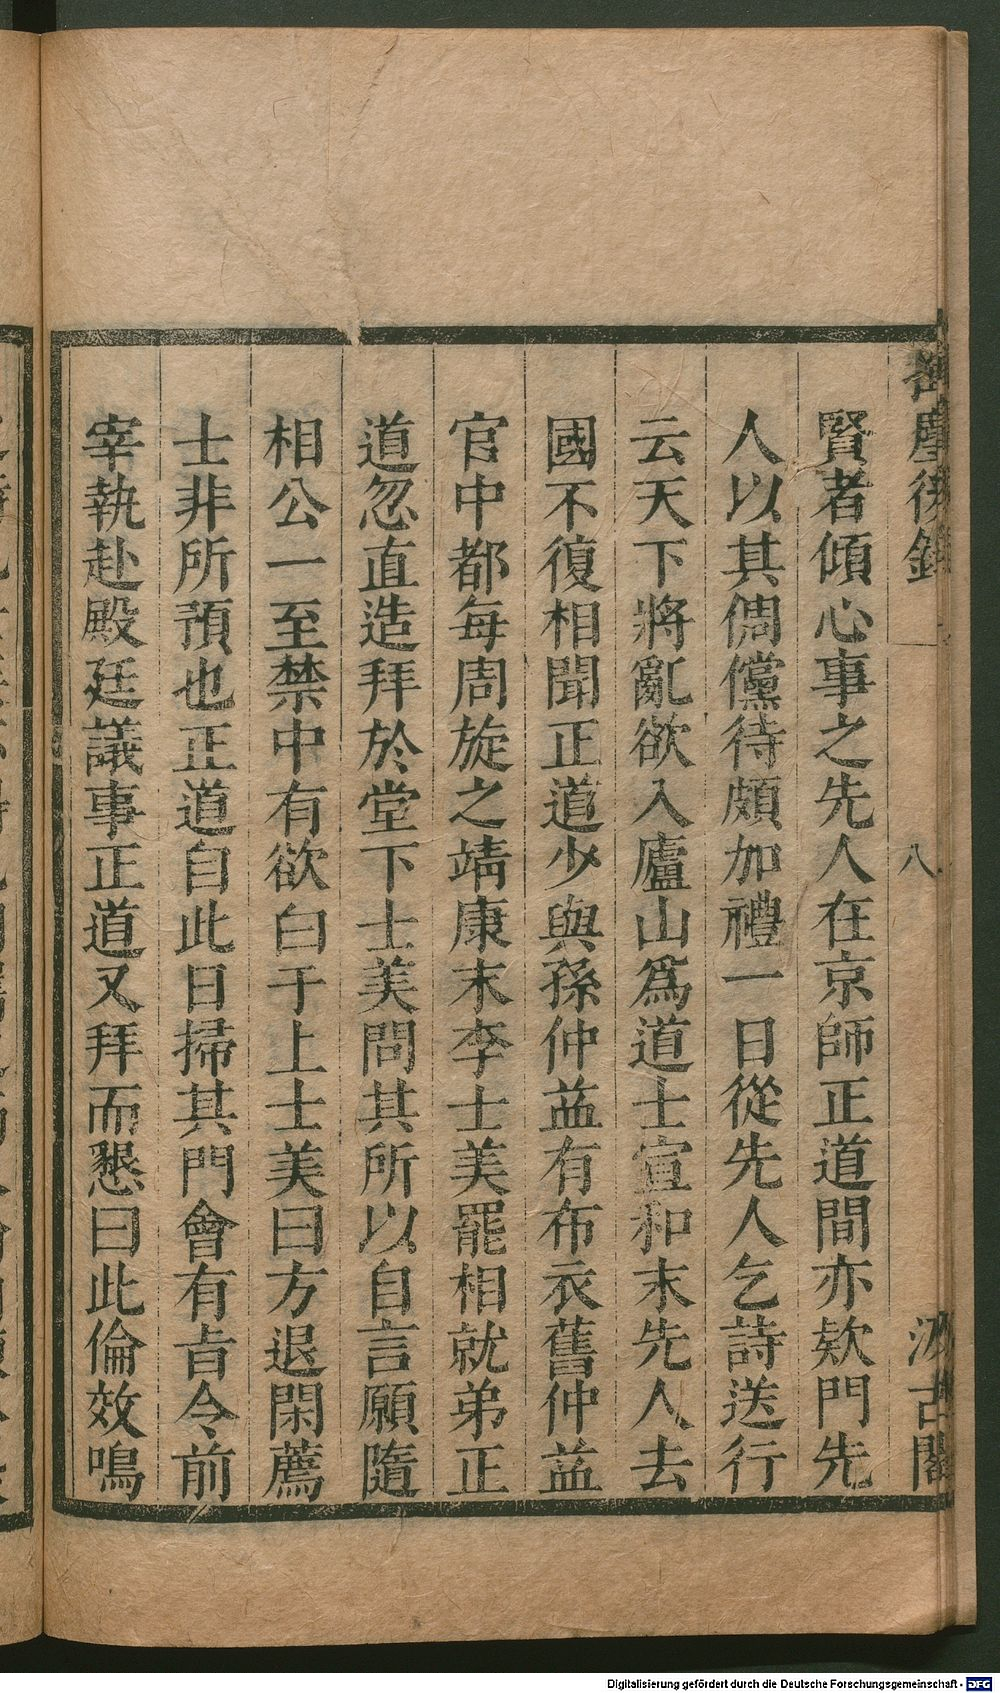 賢者傾心事之先人在京師正道間亦欵門先
人以其倜儻待頗加禮一日從先人乞詩送行
云天下將亂欲入廬山爲道士宣和末先人去
國不復相聞正道少與孫仲益有布衣舊仲益
官中都每周旋之靖康末李士美罷相就弟正
道忽直造拜於堂下士美問其所以自言願隨
相公一至禁中有欲白于上士美曰方退閑薦
士非所預也正道自此日掃其門會有旨令前
宰執赴殿廷議事正道又拜而懇曰此倫效鳴
後錄
八
汲古閣
Digitalisierung gefördert durch die Deutsche Forschungsgemeinschaft - DFG